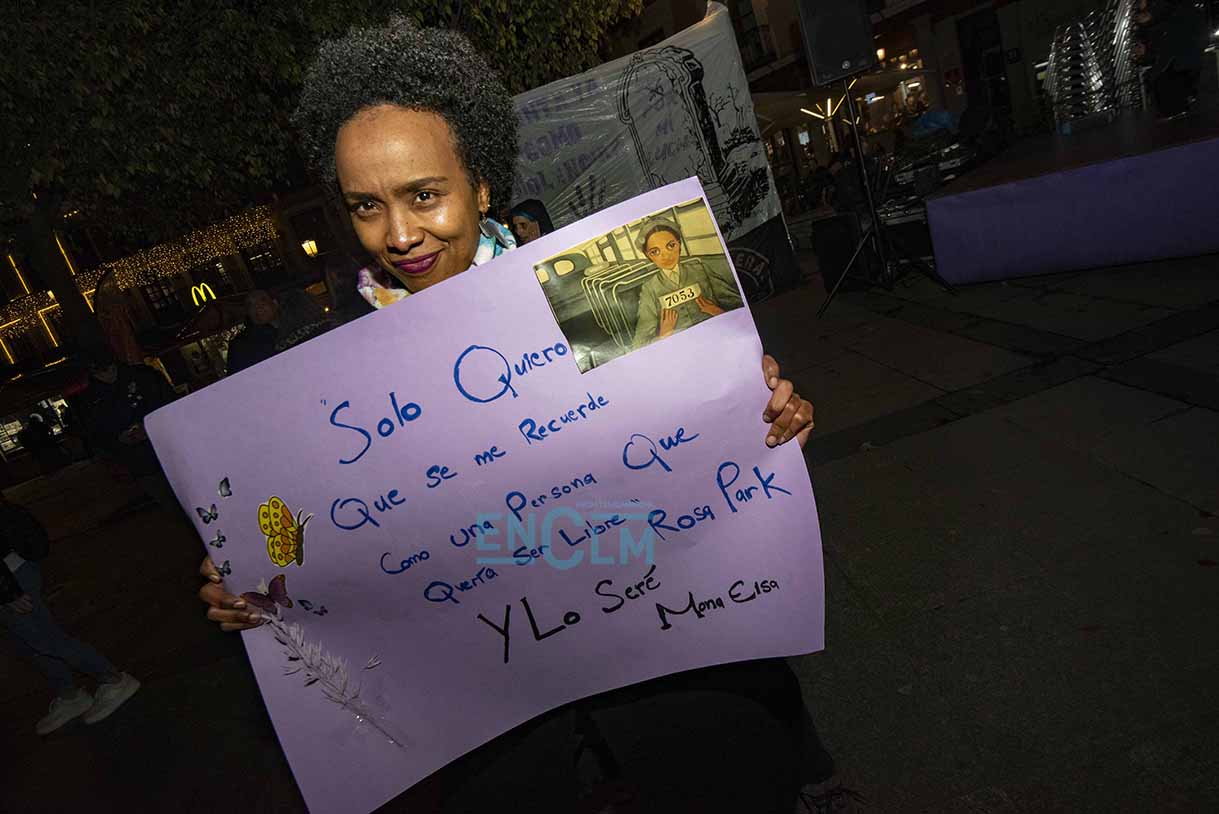 "Solo Quiero
Que se me Recuerde
Como una Persona Que
Quería Ser Libre" Rosa Park
Y Lo Seré
Mona Elsa
7053
ENCLM